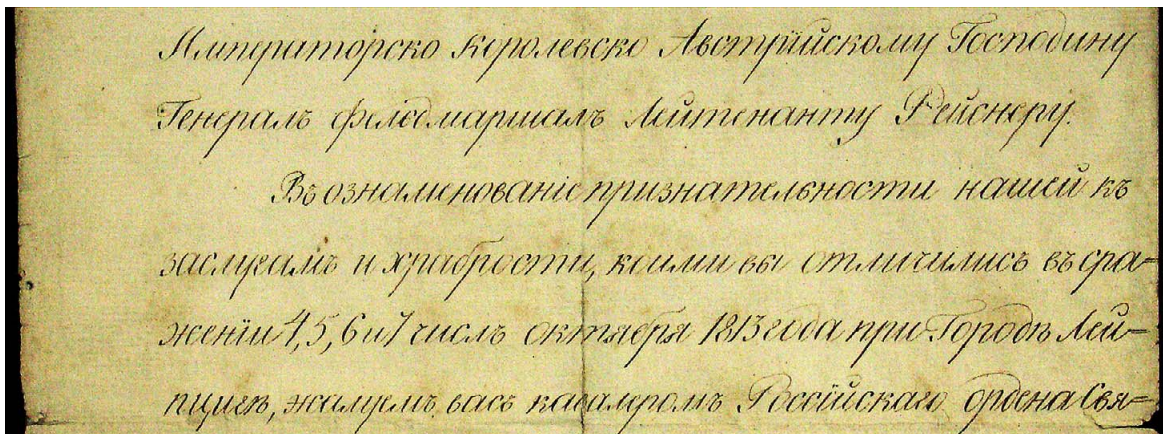 Императорско Королевско Австрійскому Господину
Генералъ фельдмаршалъ Лейтенанту Рейснеру.
Въ ознаменованіе признательности нашей къ
заслугамъ и храбрости, коими вы отличились въ сра=
женіи 4, 5, 6 и 7 числъ октября 1813 года при Городѣ Лей=
пцигѣ, жалуемъ васъ кавалеромъ Россійскаго ордена Свя=